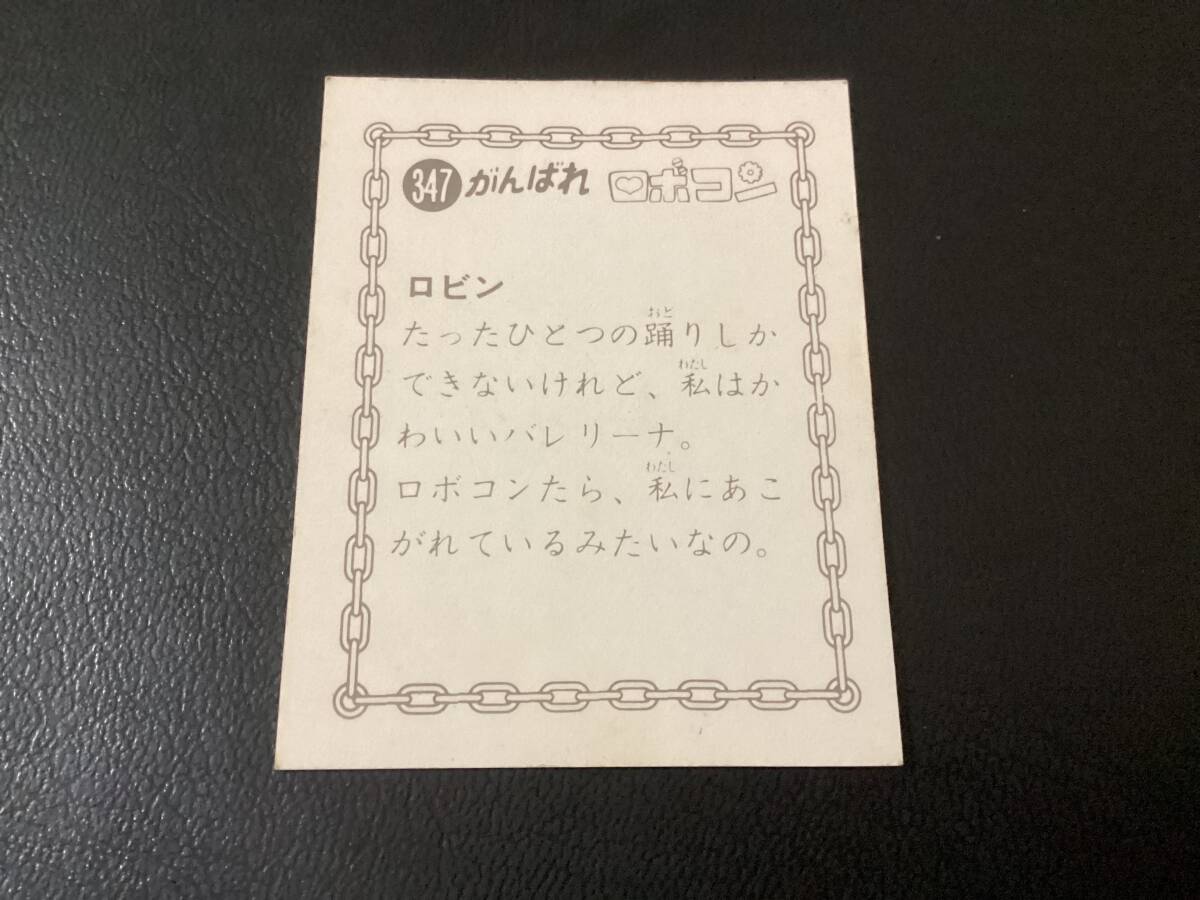 347 がんばれ ロボコン
ロビン
たったひとつの踊りしか
できないけれど、私はか
わいいバレリーナ。
ロボコンたら、私にあこ
がれているみたいなの。